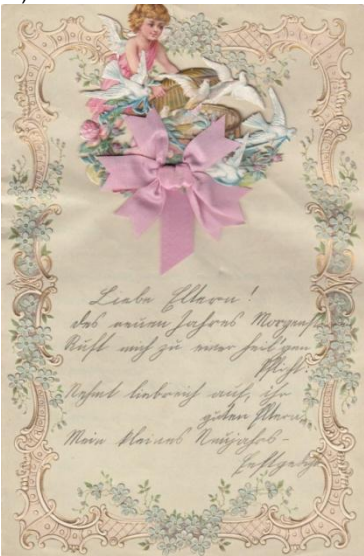 Liebe Eltern!
des neuen Jahres Morgenst
Ruft mich zu einer heiligen
Pflicht.
Nehmt liebreich auf, ihr
guten Eltern,
Mein kleines Neujahrs-
Festgedicht